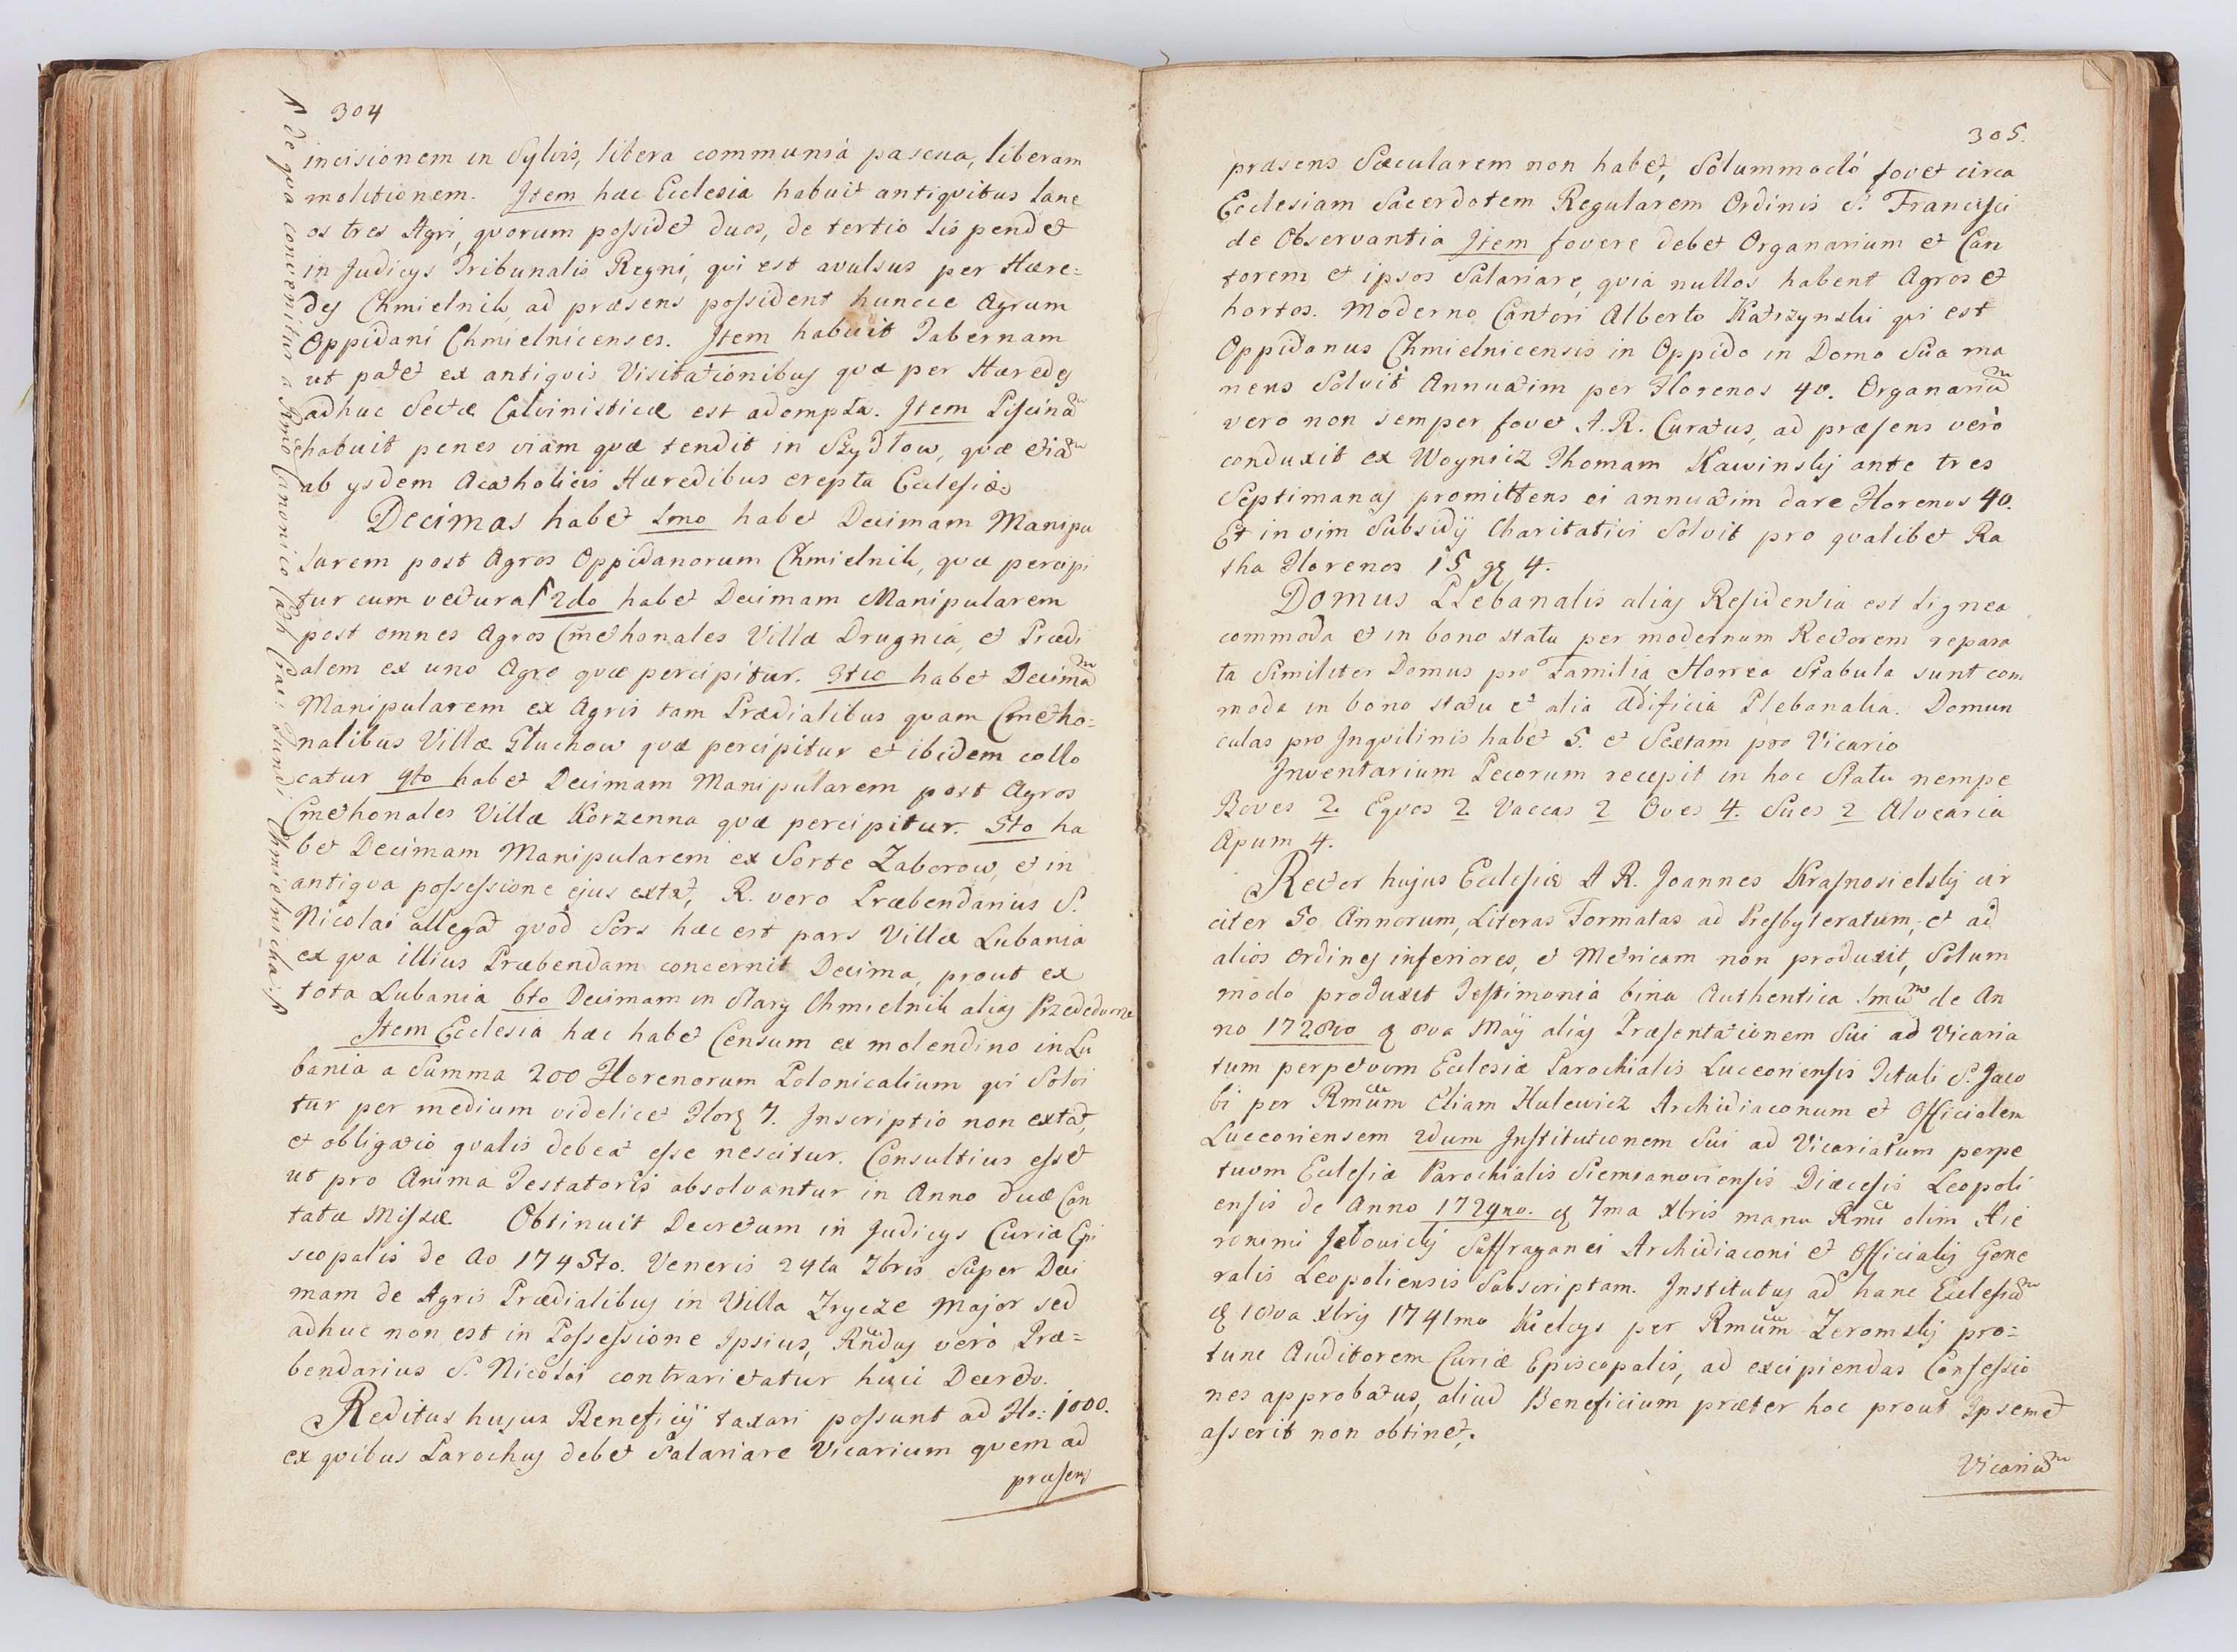 304
incisionem in Sylvis, libera communia pascua, liberam
molitionem. Item hæc Ecclesia habuit antiqvitus lane
os tres Agri, qvorum possidet duos, de tertio lis pendet
in Judicys Tribunalis Regni, qvi est avulsus per Hære=
des Chmielnik, ad præsens possident huncce Agrum
Oppidani Chmielnicenses. Item habuit Tabernam
ut patet ex antiqvis Visitationibus qvæ per Hæredes
adhuc Sectæ Calvinisticæ est adempta. Item Piscinam
habuit penes viam qvæ tendit in Szydłow, qvæ etiam
ab ysdem Acatholicis Hæredibus erepta Ecclesiæ.
Decimas habet 1mo habet Decimam Manipu
larem post Agros Oppidanorum Chmielnik, qvæ percipi
tur cum vectura 2do habet Decimam Manipularem
post omnes Agros Cmethonales Villæ Drugnia, et Prædi
alem ex uno Agro qvæ percipitur. 3tio habet Decimam
Manipularem ex Agris tam Prædialibus qvam Cmetho=
nalibus Villæ Głuchow qvæ percipitur et ibidem collo
catur 4to habet Decimam Manipularem post Agros
Cmethonales Villæ Korzenna qvæ percipitur. 5to ha
bet Decimam Manipularem ex Sorte Zaborow, et in
antiqva possessione ejus extat, R. vero Præbendarius S.
Nicolai allegat qvod Sors hæc est pars Villæ Lubania
ex qva illius Præbendam concernit Decima, prout ex
tota Lubania 6to Decimam in Stary Chmielnik alias Przededworze
Item Ecclesia hæc habet Censum ex molendino in Lu
bania a Summa 200 Florenorum Polonicalium qvi Solvi
tur per medium videlicet Flor 7. Inscriptio non extat,
et obligatio qvalis debeat esse nescitur. Consultius esset
ut pro Anima Testatoris absolvantur in Anno duæ Can
tatæ Missæ. Obtinuit Decretum in Judicys Curiæ Epi
scopalis de Ao 1745to. Veneris 24ta 7bris Super Deci
mam de Agris Prædialibus in Villa Zrycze Major sed
adhuc non est in Possessione Ipsius, Rndus verò Præ=
bendarius S. Nicolai contrarietatur huic Decreto.
Reditus hujus Beneficij taxari possunt ad Flo: 1000.
ex qvibus Parochus debet Salariare Vicarium qvem ad
præsens
de qva convenitur a Rmo Canonico Cath. Chmielnicka
305.
præsens Sæcularem non habet, Sólummodó fovet circa
Ecclesiam Sacerdotem Regularem Ordinis S. Francisci
de Observantia Item fovere debet Organarium et Can
torem et ipsos Salariare, qvia nullos habent Agros et
hortos. Moderno Cantori Alberto Katrzynski qvi est
Oppidanus Chmielnicensis in Oppido in Domo Sua ma
nens Solvit Annuatim per Florenos 40. Organarium
vero non semper fovet A.R. Curatus, ad præsens verò
conduxit ex Woynicz Thomam Kawinsky ante tres
Septimanas promittens ei annuatim dare Florenos 40.
Et in vim Subsidij Charitativi Solvit pro qvalibet Ra
tha Florenos 15 gr 4.
Domus Plebanalis alias Residentia est lignea
commoda et in bono statu per modernum Rectorem repara
ta Similiter Domus pro Familia Horrea Stabula sunt com
moda in bono statu et alia ædificia Plebanalia. Domun
culas pro Inqvilinis habet 5. et Sextam pro Vicario
Inventarium Pecorum recepit in hoc Statu nempe
Boves 2. Eqvos 2. Vaccas 2 Oves 4. Sues 2 Alvearia
Apum 4.
Rector hujus Ecclesiæ A R. Joannes Krasnosielsky cir
citer 50 Annorum, Literas Formatas ad Presbyteratum, et ad
alios ordines inferiores, et Metricam non produxit, Solum
modo produxit Testimonia bina Authentica 1mum de An
no 1728vo d 8va Maij alias Præsentationem Sui ad Vicaria
tum perpetuum Ecclesiæ Parochialis Luceoriensis Tituli S. Jaco
bi per Rmum Eliam Hulewicz Archidiaconum et Officialem
Luceoriensem 2dum Institutionem Sui ad Vicariatum perpe
tuum Ecclesiæ Parochialis Siemianoviensis Diæcesis Leopoli
ensis de Anno 1729no. d 7ma Xbris manu Rmi olim Hie
ronimi Jełowicky Suffraganei Archidiaconi et Officialis Gene
ralis Leopoliensis Subscriptam. Institutus ad hanc Ecclesiam
d 18va Xbris 1741mo Kielcys per Rmum Zeromsky pro=
tunc Auditorem Curiæ Episcopalis, ad excipiendas Confessio
nes approbatus, aliud Beneficium præter hoc prout Ipsemet
asserit non obtinet.
Vicarium